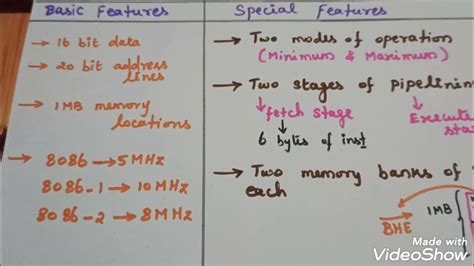 Basic Features
→ 16 bit data
→ 20 bit address
lines
→ 1MB memory
locations
→ 8086 → 5 MHz
8086-1 → 10 MHz
8086-2 → 8 MHz
Special Features
→ Two modes of operation
(Minimum & Maximum)
→ Two stages of
fetch stage
Execute
6 bytes of inst
→ Two memory banks of
each
BHE
1MB
Made with
VideoShow